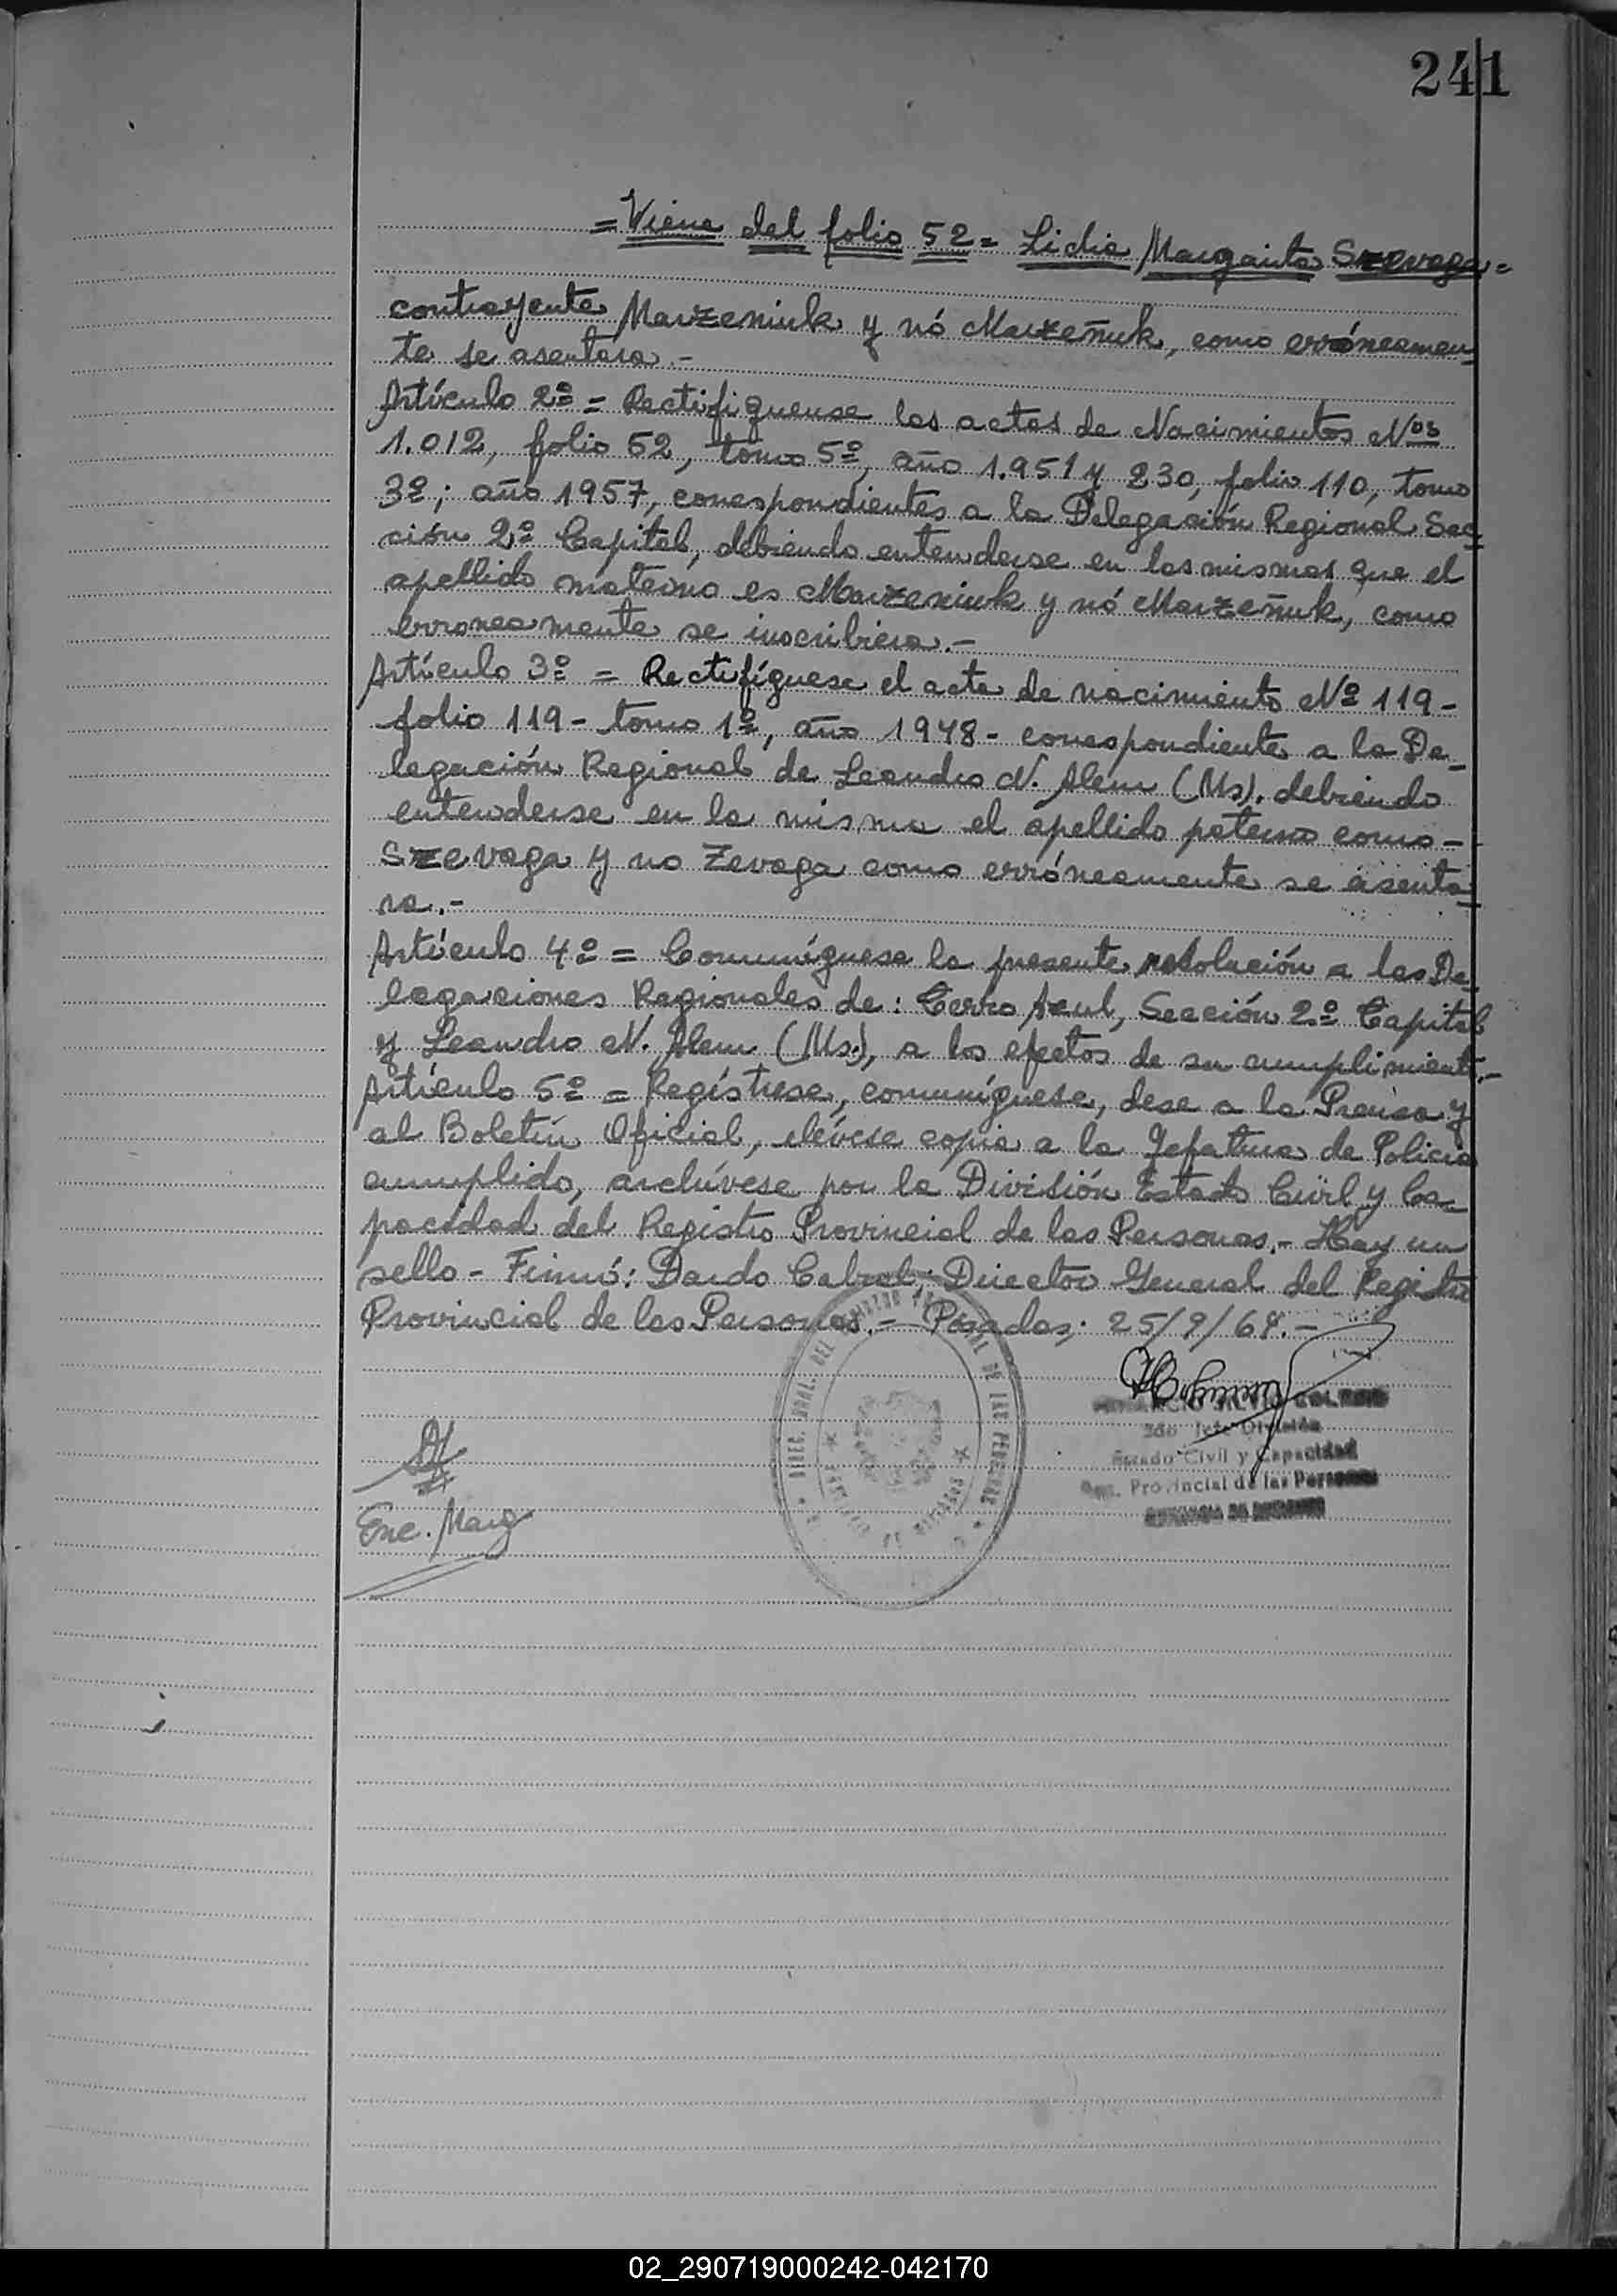 241
= Viene del folio 52 = Lidia Margarita Szevaga =
contrayente Marzeniuk y nó Marzeñuk, como erróneamen
te se asentara.-
Artículo 2º = Rectifiquense las actas de Nacimientos Nos
1.012, folio 52, tomo 5º, año 1.951 y 230, folio 110, tomo
3º; año 1957, correspondientes a la Delegación Regional Sec
ción 2º Capital, debiendo entenderse en las mismas que el
apellido materno es Marzeniuk y nó Marzeñuk, como
erroneamente se inscribiera.-
Artículo 3º = Rectifíquese el acta de nacimiento Nº 119-
folio 119- tomo 1º, año 1948- correspondiente a la De_
legación Regional de Leandro N. Alem (Ms). debiendo
entenderse en la misma el apellido paterno como-
Szevaga y no Zevaga como erróneamente se asenta
ra.-
Artículo 4º = Comuníquese la presente resolución a las De_
legaciones Regionales de: Cerro Azul, Sección 2º Capital
y Leandro N. Alem (Ms.), a los efectos de su cumplimiento.-
Artículo 5º = Regístrese, comuníquese, dese a la Prensa y
al Boletín Oficial, elévese copia a la Jefatura de Policia
cumplido, archívese por la División Estado Civil y Ca_
pacidad del Registro Provincial de las Personas.- Hay un
sello - Firmó: Dardo Cabral: Director General del Registro
Provincial de las Personas.- Posadas; 25/9/68.-
DIREC. GRAL. DEL REGISTRO PROVINCIAL DE LAS PERSONAS
2do Jefe División
Estado Civil y Capacidad
Reg. Provincial de las Personas
Enc. Marg
02_290719000242-042170